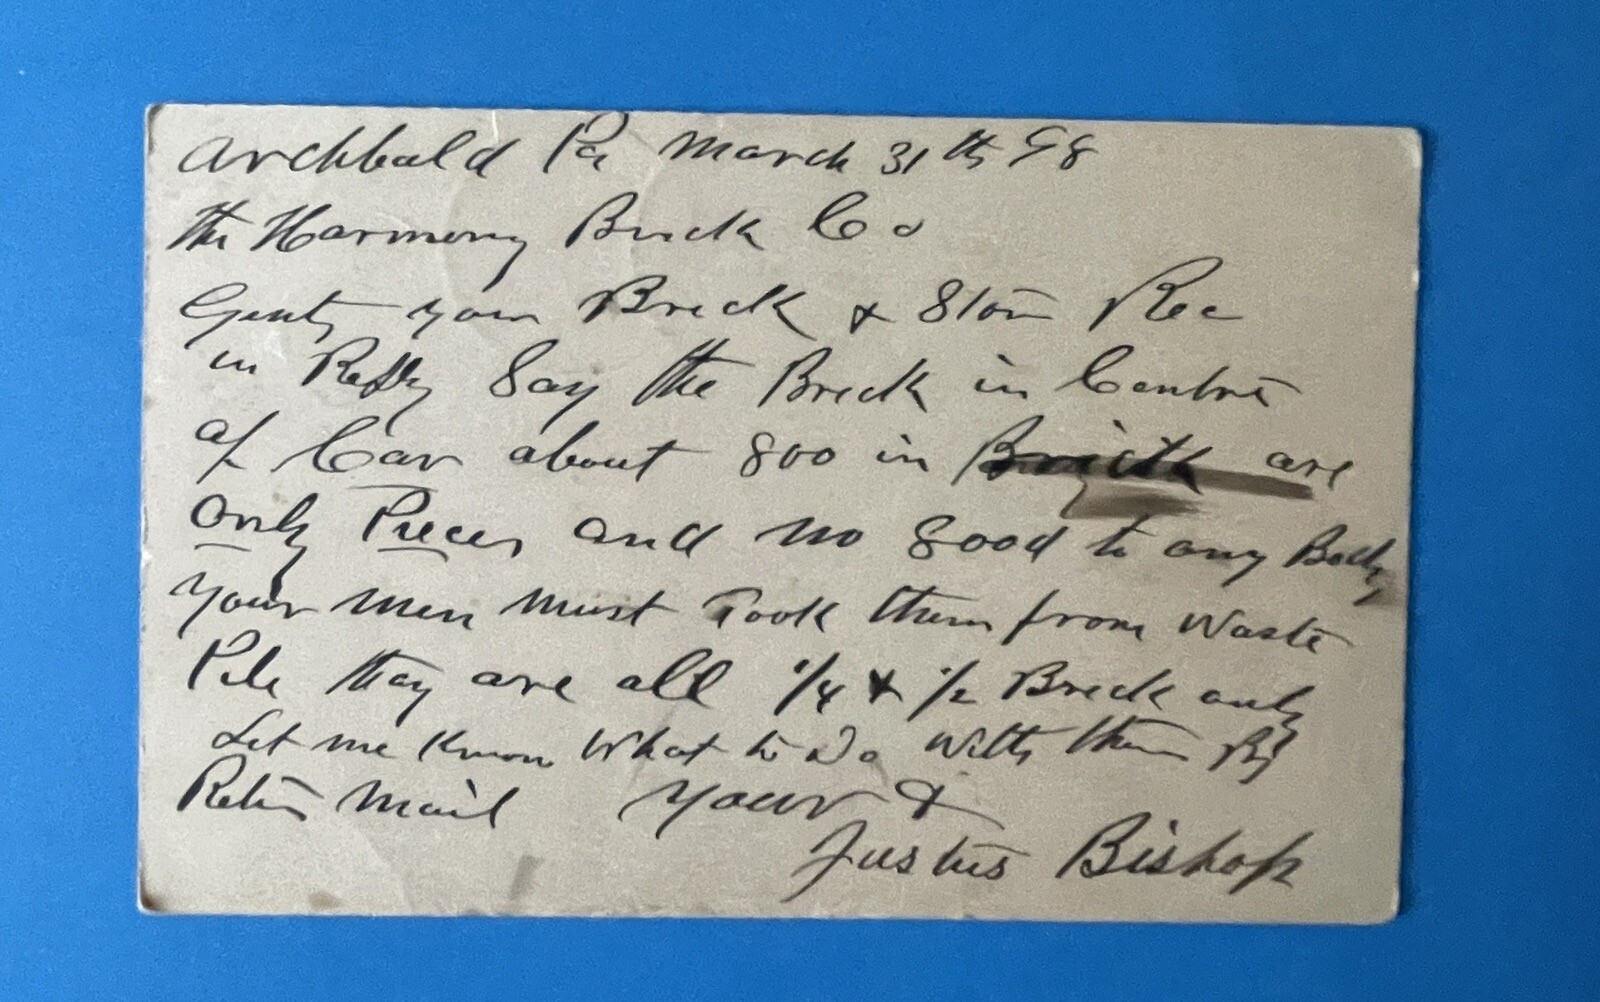 Archbald Pa March 31th 98
the Harmony Brick Co
Gents your Brick & Ston Rec
in Reply Say the Brick in Centre
of Car about 800 in Brick are
only Pieces and no good to any Body
your men must Took them from Waste
Pile they are all 1/4 & 1/2 Brick only
Let me Know What to Do With them By
Return Mail your &
Justus Bishop